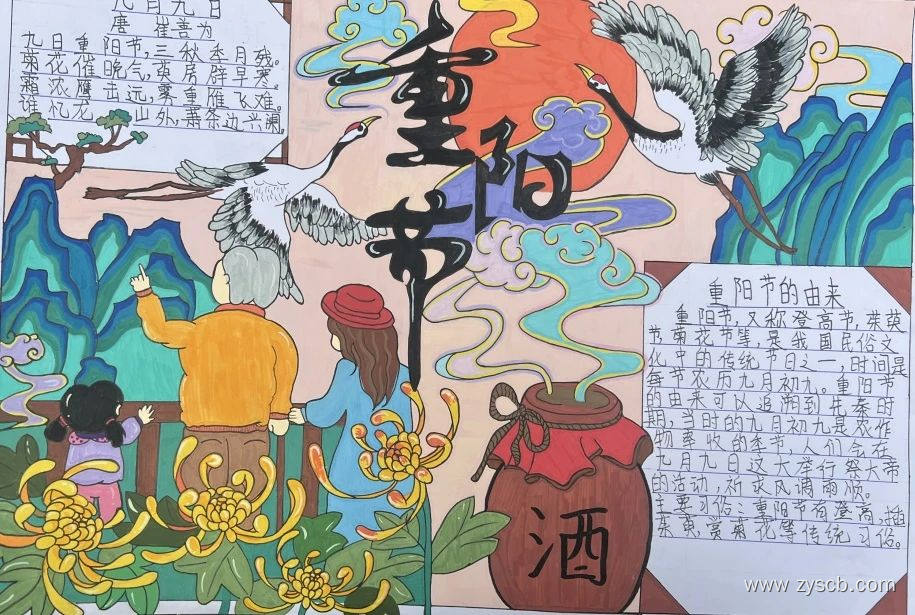 九月九日
唐 崔善为
九日重阳节，三秋季月残。
菊花催晚气，萸房辟早寒。
霜浓鹰击远，雾重雁飞难。
谁忆龙山外，萧条边兴阑。
重阳节
重阳节的由来
重阳节，又称登高节，茱萸
节、菊花节等，是我国民俗文
化中的传统节日之一，时间是
每节农历九月初九。重阳节
的由来可以追朔到先秦时
期，当时的九月初九是农作
物丰收的季节，人们会在
九月九日这天举行祭天帝
的活动，祈求风调雨顺。
主要习俗：重阳节有登高，插
茱萸，赏菊花等传统习俗。
酒
www.zyscb.com